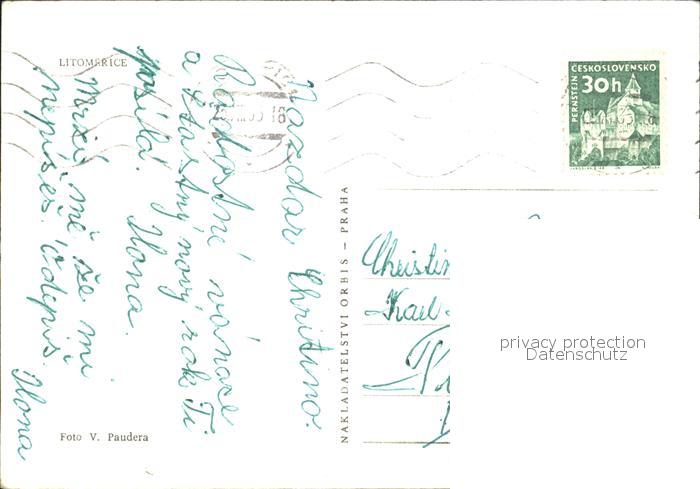 LITOMĚŘICE
Nazdar Christino.
Radostné vánoce
a šťastný nový rok Ti
posílá. Ilona.
Mrzí mě že mi
nepíšeš. Odepiš.
Ilona
Foto V. Paudera
NAKLADATELSTVÍ ORBIS – PRAHA
ČESKOSLOVENSKO
30h
PERNŠTEJN
18
Christin
Karl
privacy protection
Datenschutz